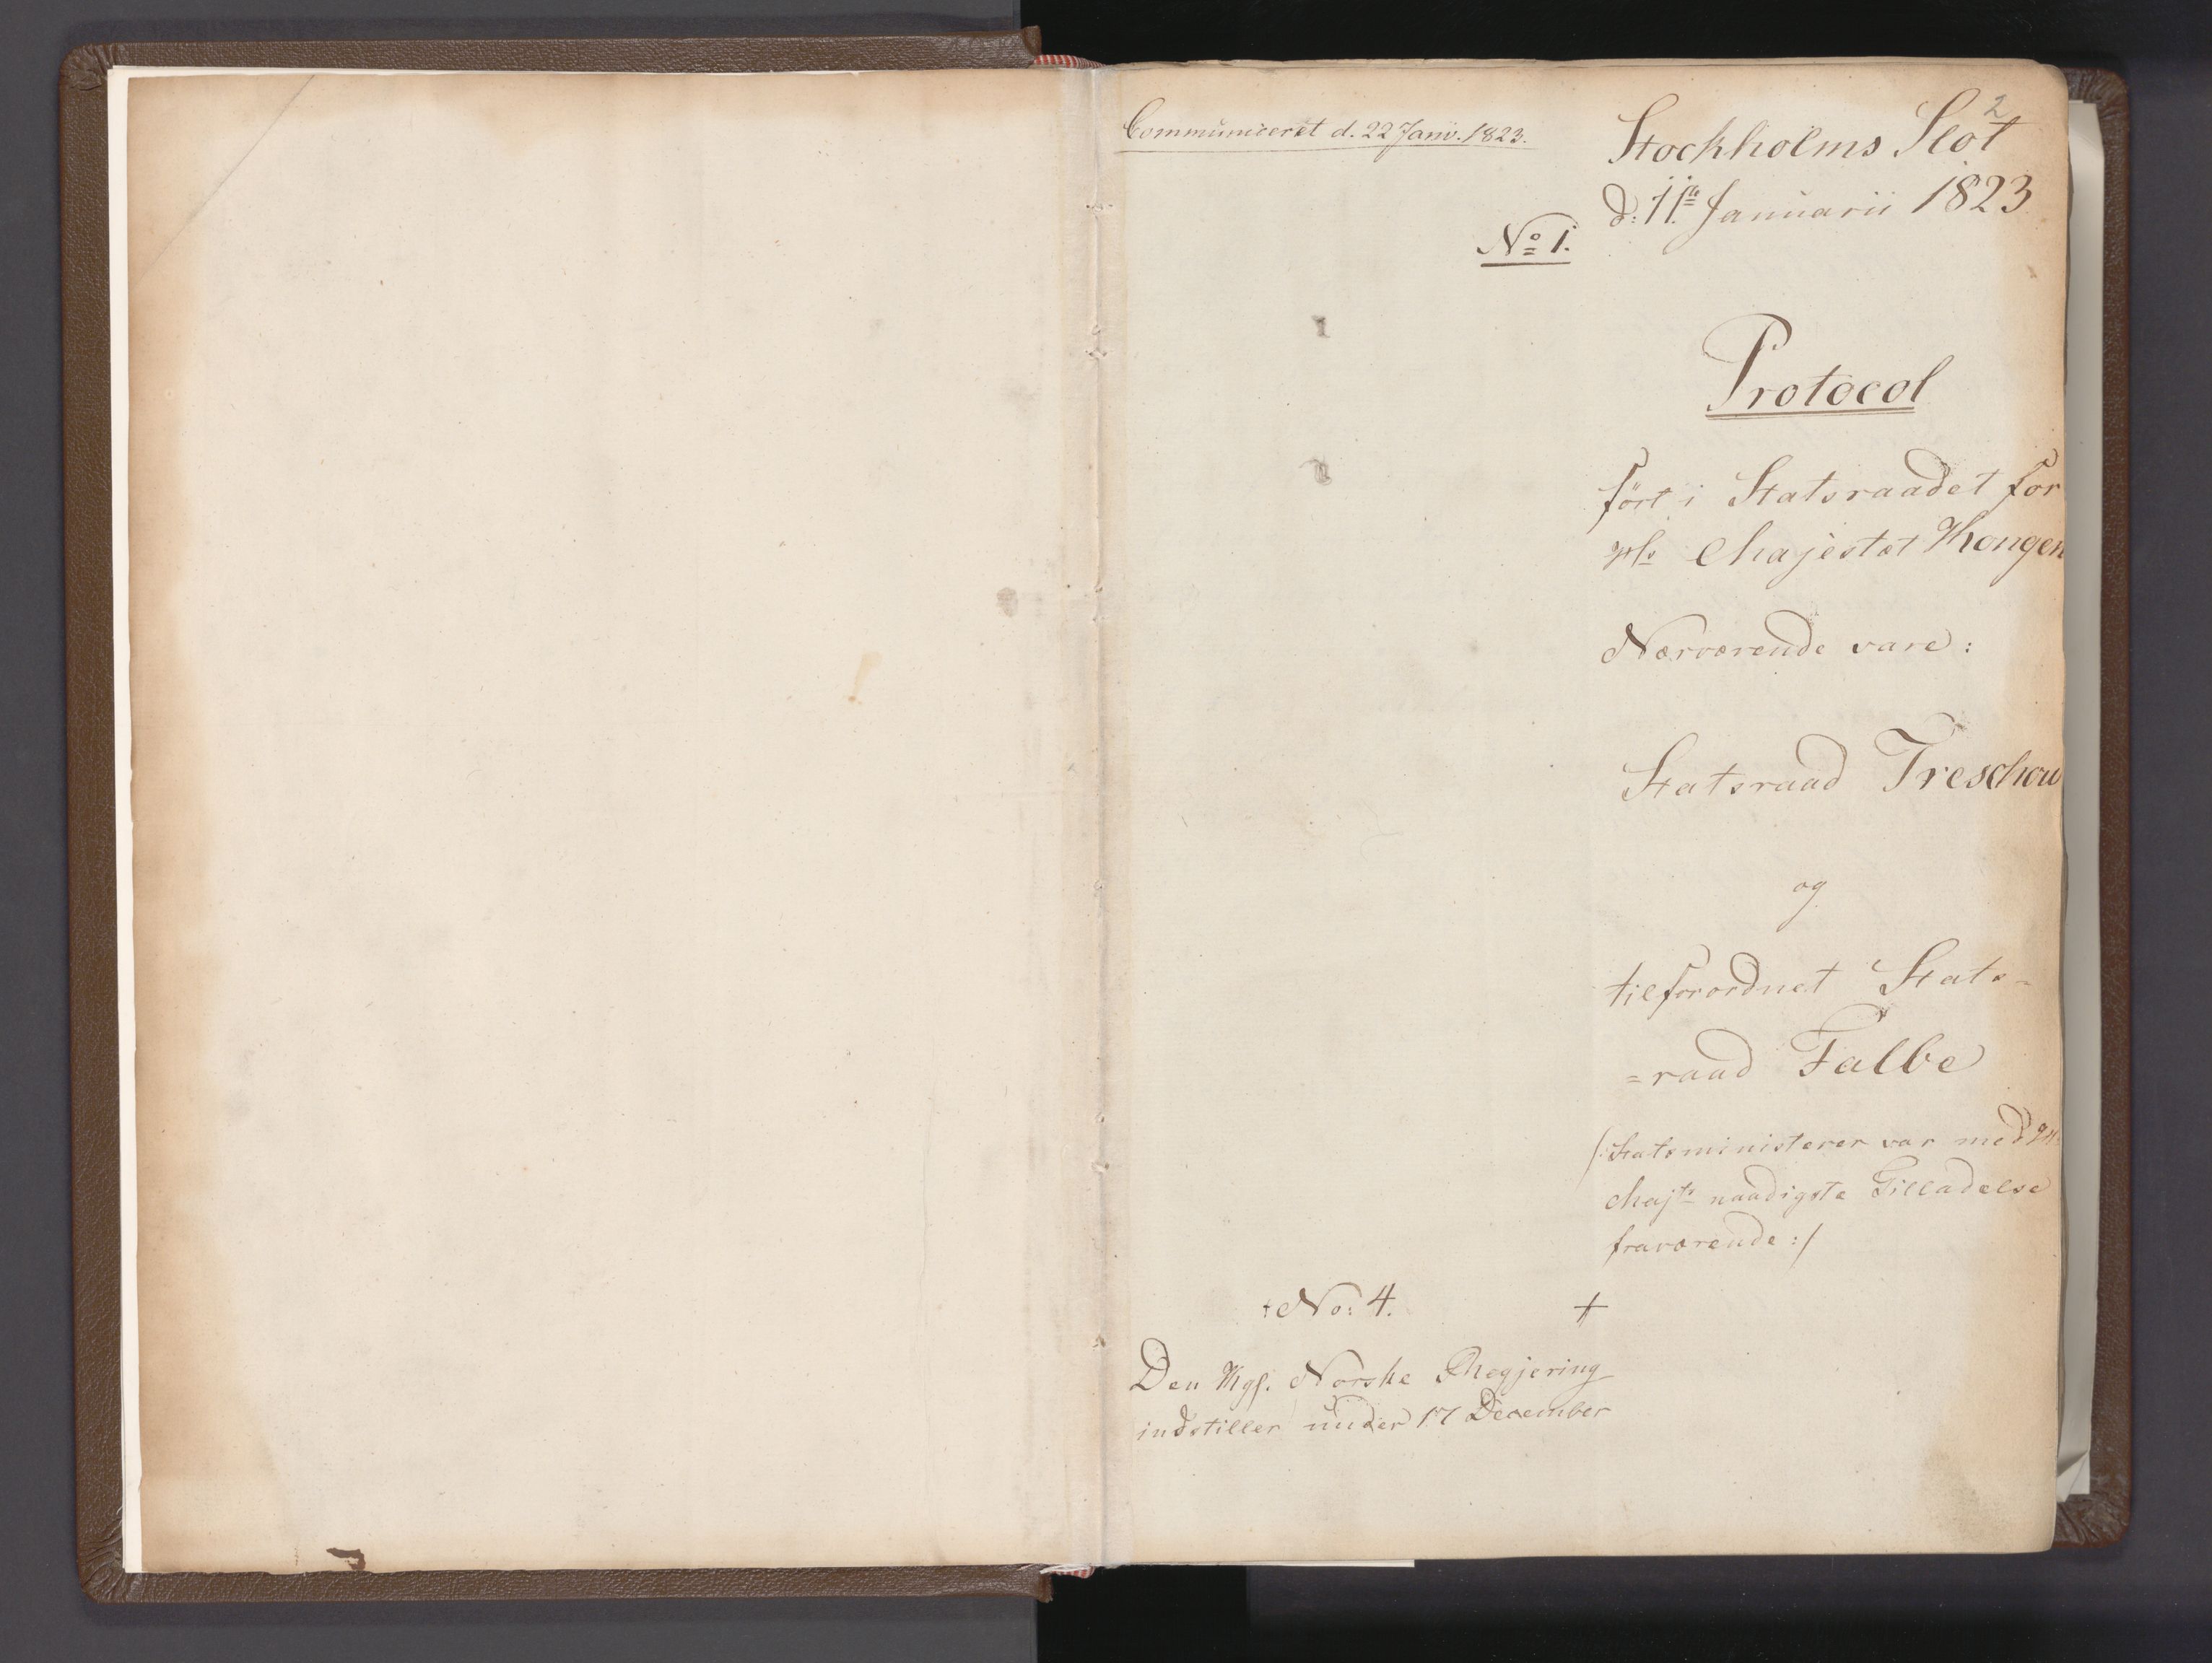 2
Communiceret d. 22 Janv. 1823.
Stockholms Slot
d: 11te Januarii 1823
No 1.
Protocol
ført i Statsraadet for
Hs Majestæt Kongen
Nærværende vare:
Statsraad Treschow
og
tilforordnet Stats=
=raad Falbe
/:Statsministeren var med Hs
Majts naadigste Tilladelse
fraværende:/
+No: 4. +
Den Kgl. Norske Regjering
indstiller under 17 December